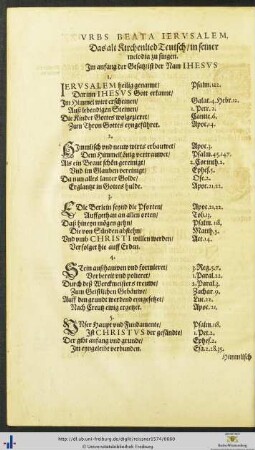 VRBS BEATA IERVSALEM,
Das alt Kirchenlied Teutsch / in seiner
melodia zu singen.
Im anfang der Gesetz ist der Nam IHESVS
1.
IERVSALEM heilig genannt / Psalm.
Darinn IHESVS Gott erkannt / 
Im Himmel wirt erscheinen / Galat.4. Hebr.12.
Auß lebendigen Steinen / 1. Petr. 2.
Die Kinder Gottes wolgezieret / Cantic. 6.
Zum Thron Gottes eyngeführet. Apoc. 4.
2.
Himmlisch und neuw wirts erbauwet / Apoc. 3.
Dem Himmelkönig vertrauwet / Psalm. 45. 147.
Als ein Braut schön gereinigt 2. Corinth.
Und im Glauben vereinigt / Ephes. 5.
Da nun alles lauter Golde / Ose. 2.
Erglantzt in Gottes hulde. Apoc. 21. 22.
3.
Die Berlein seynd die Pforten / Apoc. 21. 22.
Auffgethan an allen orten / Tob. 13.
Daß hineyn mögen gehn Psalm. 118.
Die von Sünden abstehn / Matth. 5.
Und umb CHRISTI willen werden / Act. 14.
Verfolget hie auff Erden.
4.
Stein außhauwen und formieret / 3. Reg. 5. 7.
Vor bereit und polieret / 1. Paral. 22.
Durch deß Werckmeisters treuwe / 2. Paral. 3.
Zum Geistlichen Gebäuwe / Zachar. 9.
Auff den grundt werden eyngesetzet / Luc. 22.
Nach Creutz ewig ergetzt. Apoc. 21.
5.
Unser Haupt und Fundamente / Psalm. 118.
Ist CHRISTVS der gesändte / 1. Pet. 2.
Der gibt anfang und grunde / Ephes. 2.
Im eyngeleibt verbunden. Es. 2. 28. 35.
Himmlisch
http://dl.ub.uni-freiburg.de/diglit/reissner1574/0008
© Universitätsbibliothek Freiburg